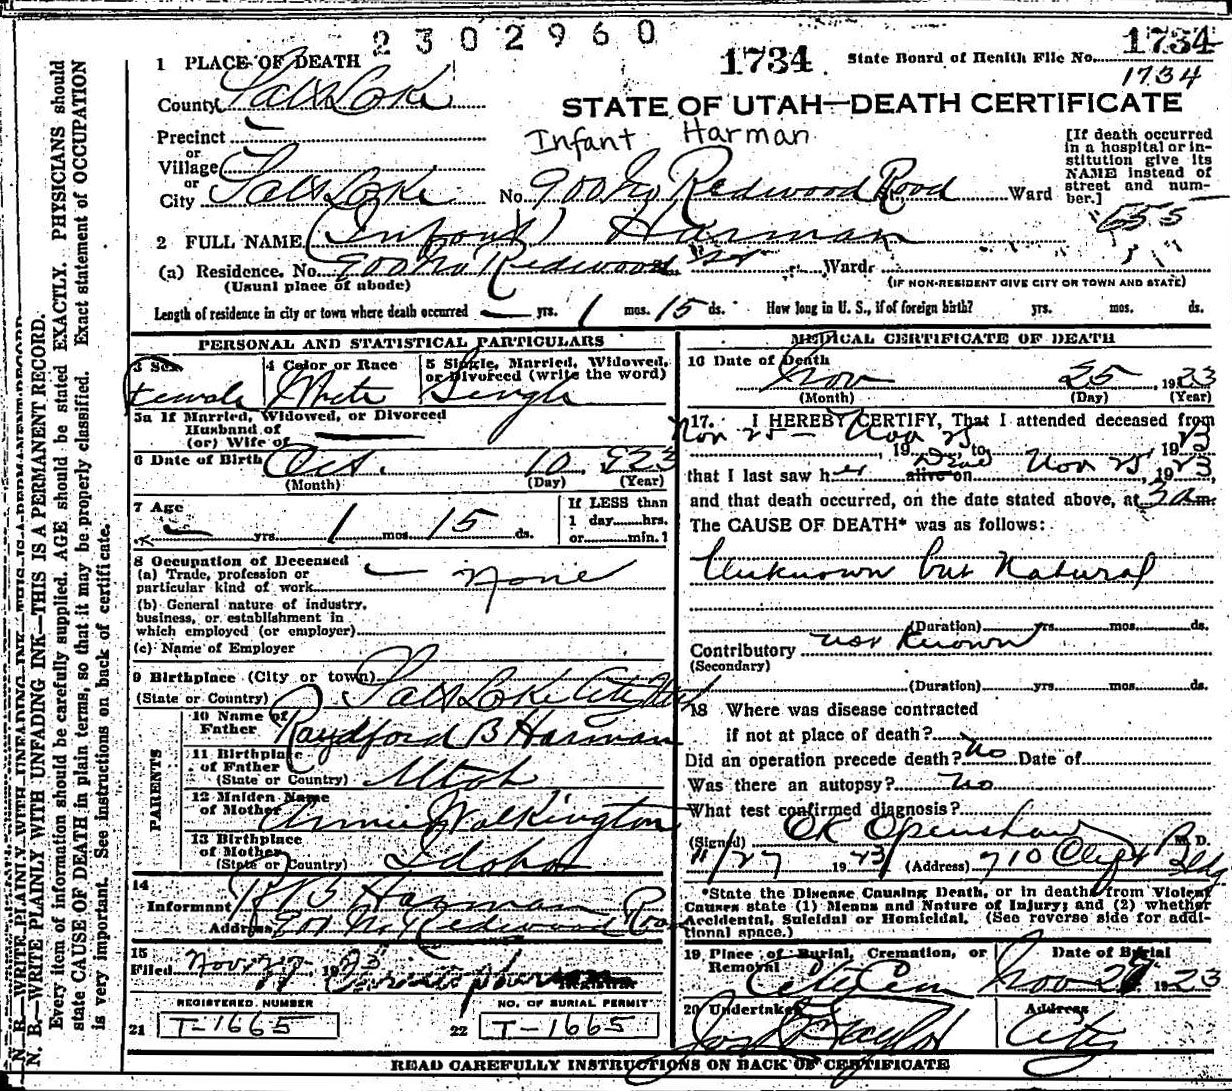 2302960
1734
State Board of Health File No. 1734
1734
1 PLACE OF DEATH
County Salt Lake
STATE OF UTAH—DEATH CERTIFICATE
Infant Harman
Precinct
or
Village
or
City Salt Lake No. 900 No Redwood Road Ward
[If death occurred
in a hospital or in-
stitution give its
NAME instead of
street and num-
ber.]
655
2 FULL NAME (Infant) Harman
(a) Residence. No. 900 No Redwood St. Ward.
(Usual place of abode)
(IF NON-RESIDENT GIVE CITY OR TOWN AND STATE)
Length of residence in city or town where death occurred — yrs. 1 mos. 15 ds. How long in U. S., if of foreign birth? yrs. mos. ds.
PERSONAL AND STATISTICAL PARTICULARS
3 Sex
Female
4 Color or Race
White
5 Single, Married, Widowed,
or Divorced (write the word)
Single
3a If Married, Widowed, or Divorced
Husband of
(or) Wife of —
6 Date of Birth Oct. 10 1923
(Month) (Day) (Year)
7 Age
— yrs. 1 mos. 15 ds.
If LESS than
1 day......hrs.
or......min.1
8 Occupation of Deceased
(a) Trade, profession or
particular kind of work — None
(b) General nature of industry,
business, or establishment in
which employed (or employer)
(c) Name of Employer
9 Birthplace (City or town)
(State or Country) Salt Lake City Utah
PARENTS
10 Name of
Father Raydford B Harman
11 Birthplace
of Father
(State or Country) Utah
12 Maiden Name
of Mother Annie Walkington
13 Birthplace
of Mother
(State or Country) Idaho
14
Informant R B Harman
Address 900 No Redwood Road
15
Filed Nov 27, 1923
REGISTRAR
REGISTERED NUMBER
21 T-1665
NO. OF BURIAL PERMIT
22 T-1665
MEDICAL CERTIFICATE OF DEATH
16 Date of Death
Nov 25, 1923
(Month) (Day) (Year)
17. I HEREBY CERTIFY, That I attended deceased from
Nov 25 — Nov 25
, 19 , to , 1923
that I last saw her alive on Dead Nov 25, 1923,
and that death occurred, on the date stated above, at 3 am.
The CAUSE OF DEATH* was as follows:
Unknown but Natural
(Duration) yrs. mos. ds.
Contributory not Known
(Secondary)
(Duration) yrs. mos. ds.
18 Where was disease contracted
if not at place of death?
Did an operation precede death? No Date of
Was there an autopsy? No
What test confirmed diagnosis?
(Signed) CK Openshaw M. D.
11/27 1923 (Address) 710 Clift Bldg
*State the Disease Causing Death, or in deaths from Violent
Causes state (1) Means and Nature of Injury; and (2) whether
Accidental, Suicidal or Homicidal. (See reverse side for addi-
tional space.)
19 Place of Burial, Cremation, or
Removal
City Cem
Date of Burial
Nov 27 1923
20 Undertaker
Jos E Taylor
Address
City
READ CAREFULLY INSTRUCTIONS ON BACK OF CERTIFICATE
N. B.—WRITE PLAINLY WITH UNFADING INK—THIS IS A PERMANENT RECORD.
Every item of information should be carefully supplied. AGE should be stated EXACTLY. PHYSICIANS should
state CAUSE OF DEATH in plain terms, so that it may be properly classified. Exact statement of OCCUPATION
is very important. See instructions on back of certificate.